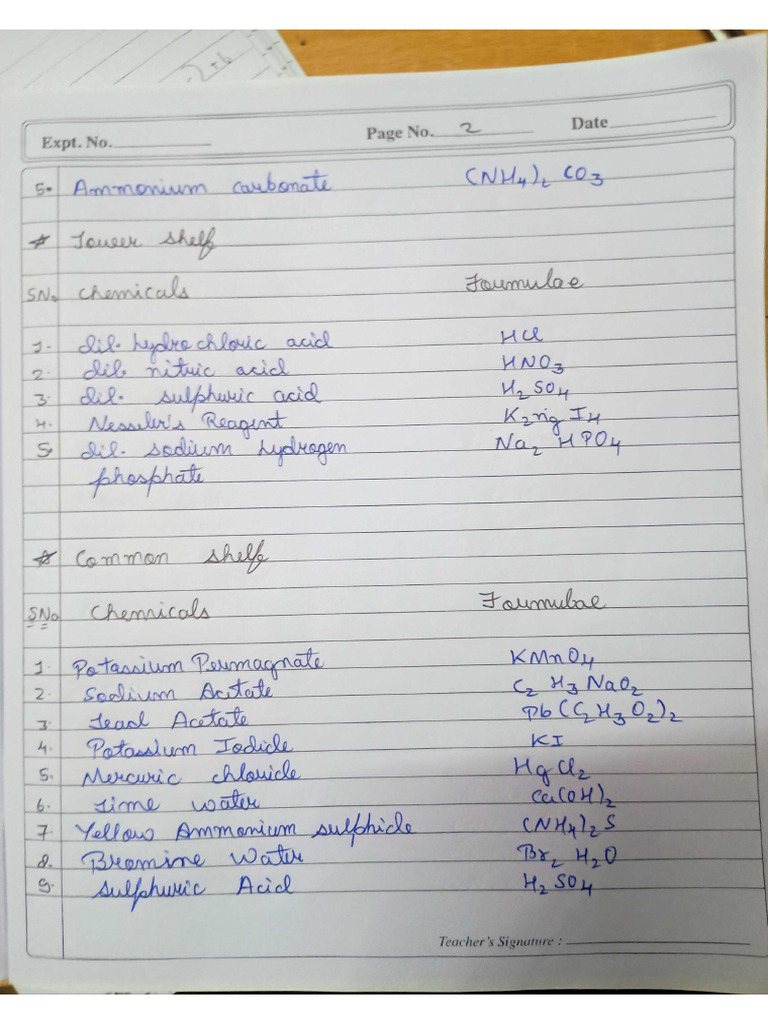 2+6
Expt. No. Page No. 2 Date
5. Ammonium carbonate (NH4)2 CO3
* Lower shelf
SNo Chemicals Formulae
1. dil. hydrochloric acid HCl
2. dil. nitric acid HNO3
3. dil. sulphuric acid H2SO4
4. Nessler's Reagent K2HgI4
5. dil. sodium hydrogen Na2HPO4
phosphate
* Common shelfe
SNo Chemicals Formulae
1. Potassium Permagnate KMnO4
2. Sodium Acitate C2H3NaO2
3. Lead Acetate Pb(C2H3O2)2
4. Potassium Iodide KI
5. Mercuric chloride HgCl2
6. Lime water Ca(OH)2
7. Yellow Ammonium sulphide (NH4)2S
8. Bromine Water Br2 H2O
9. Sulphuric Acid H2SO4
Teacher's Signature :